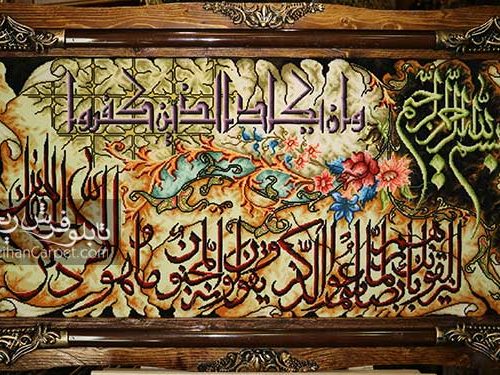 بسم الله الرحمن الرحیم
وان یکاد الذین کفروا
لیزلقونک بابصارهم لما سمعوا الذکر و یقولون انه لمجنون و ما هو
تابلو فرش
ihanCarpet.com